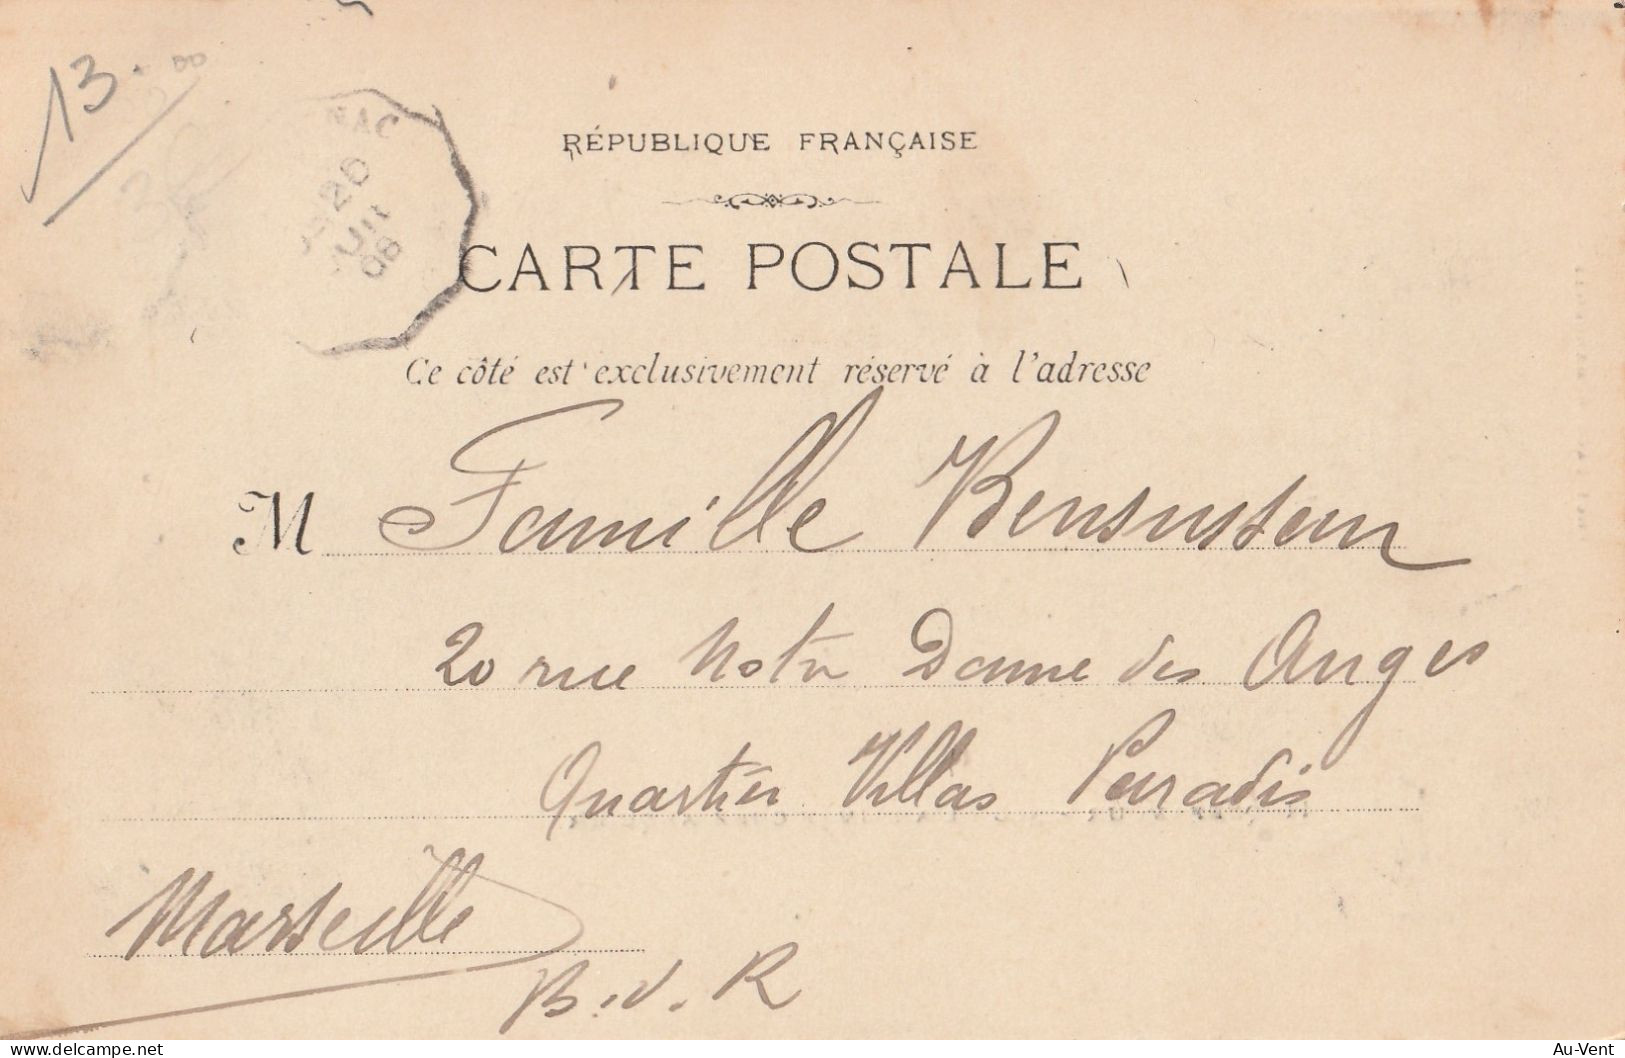 13.00
NAC
20
JUIL
08
RÉPUBLIQUE FRANÇAISE
CARTE POSTALE
Ce côté est exclusivement réservé à l'adresse
M Famille Bensussan
20 rue Notre Dame des Anges
Quartier Villas Paradis
Marseille
B. d. R
delcampe.net
Au-Vent